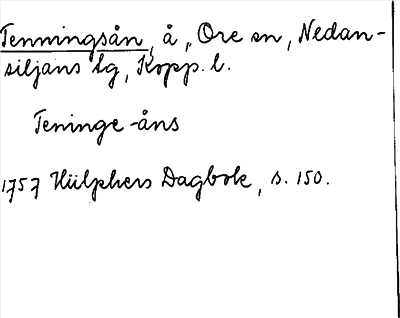 Tenningsån, å, Ore sn, Nedan-
siljans tg, Kopp. l.
Teninge-åns
1757 Hülphers Dagbok, s. 150.